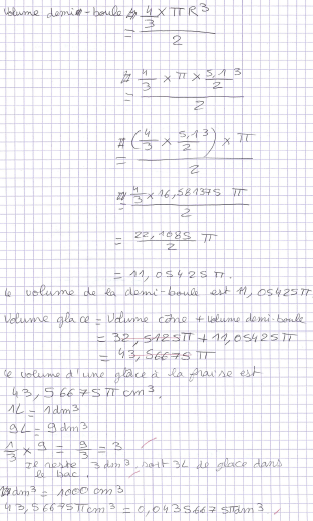 Volume demi-boule = (4/3 × π R³)/2
= (4/3 × π × 5,1³/2)/2
= ((4/3 × 5,1³/2) × π)/2
= (4/3 × 16,581375 π)/2
= 22,1085/2 π
= 11,05425 π.
le volume de la demi-boule est 11,05425π
Volume glace = Volume cône + volume demi-boule
= 32,5125π + 11,05425π
= 43,56675 π
le volume d'une glace à la fraise est
43,56675π cm³.
1L = 1dm³
9L = 9dm³
1/3 × 9 = 9/3 = 3
Il reste 3dm³, soit 3L de glace dans
le bac
1dm³ = 1000 cm³
43,56675π cm³ = 0,04356675π dm³